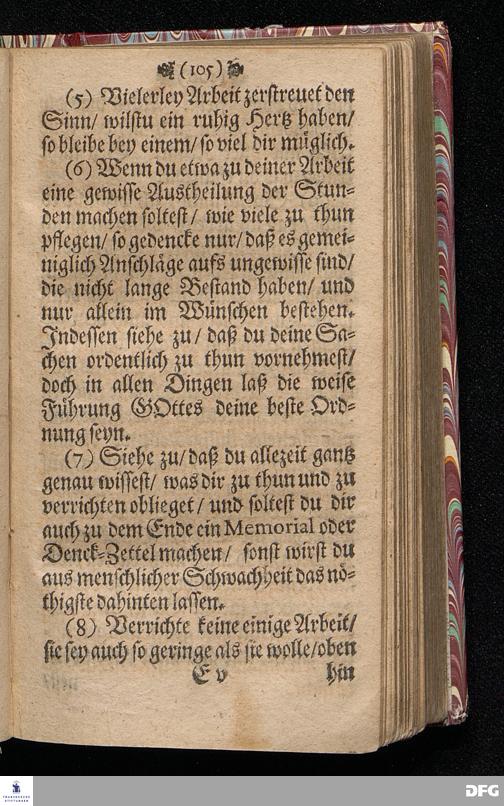 (105)
(5) Vielerley Arbeit zerstreuet den
Sinn/ wilstu ein ruhig Hertz haben/
so bleibe bey einem/ so viel dir müglich.
(6) Wenn du etwa zu deiner Arbeit
eine gewisse Austheilung der Stun-
den machen soltest/ wie viele zu thun
pflegen/ so gedencke nur/ daß es gemei-
niglich Anschläge aufs ungewisse sind/
die nicht lange Bestand haben/ und
nur allein im Wünschen bestehen.
Indessen siehe zu/ daß du deine Sa-
chen ordentlich zu thun vornehmest/
doch in allen Dingen laß die weise
Führung GOttes deine beste Ord-
nung seyn.
(7) Siehe zu/ daß du allezeit gantz
genau wissest/ was dir zu thun und zu
verrichten oblieget/ und soltest du dir
auch zu dem Ende ein Memorial oder
Denck-Zettel machen/ sonst wirst du
aus menschlicher Schwachheit das nö-
thigste dahinten lassen.
(8) Verrichte keine einige Arbeit/
sie sey auch so geringe als sie wolle/ oben
E v hin
FRANCKESCHE
STIFTUNGEN
DFG